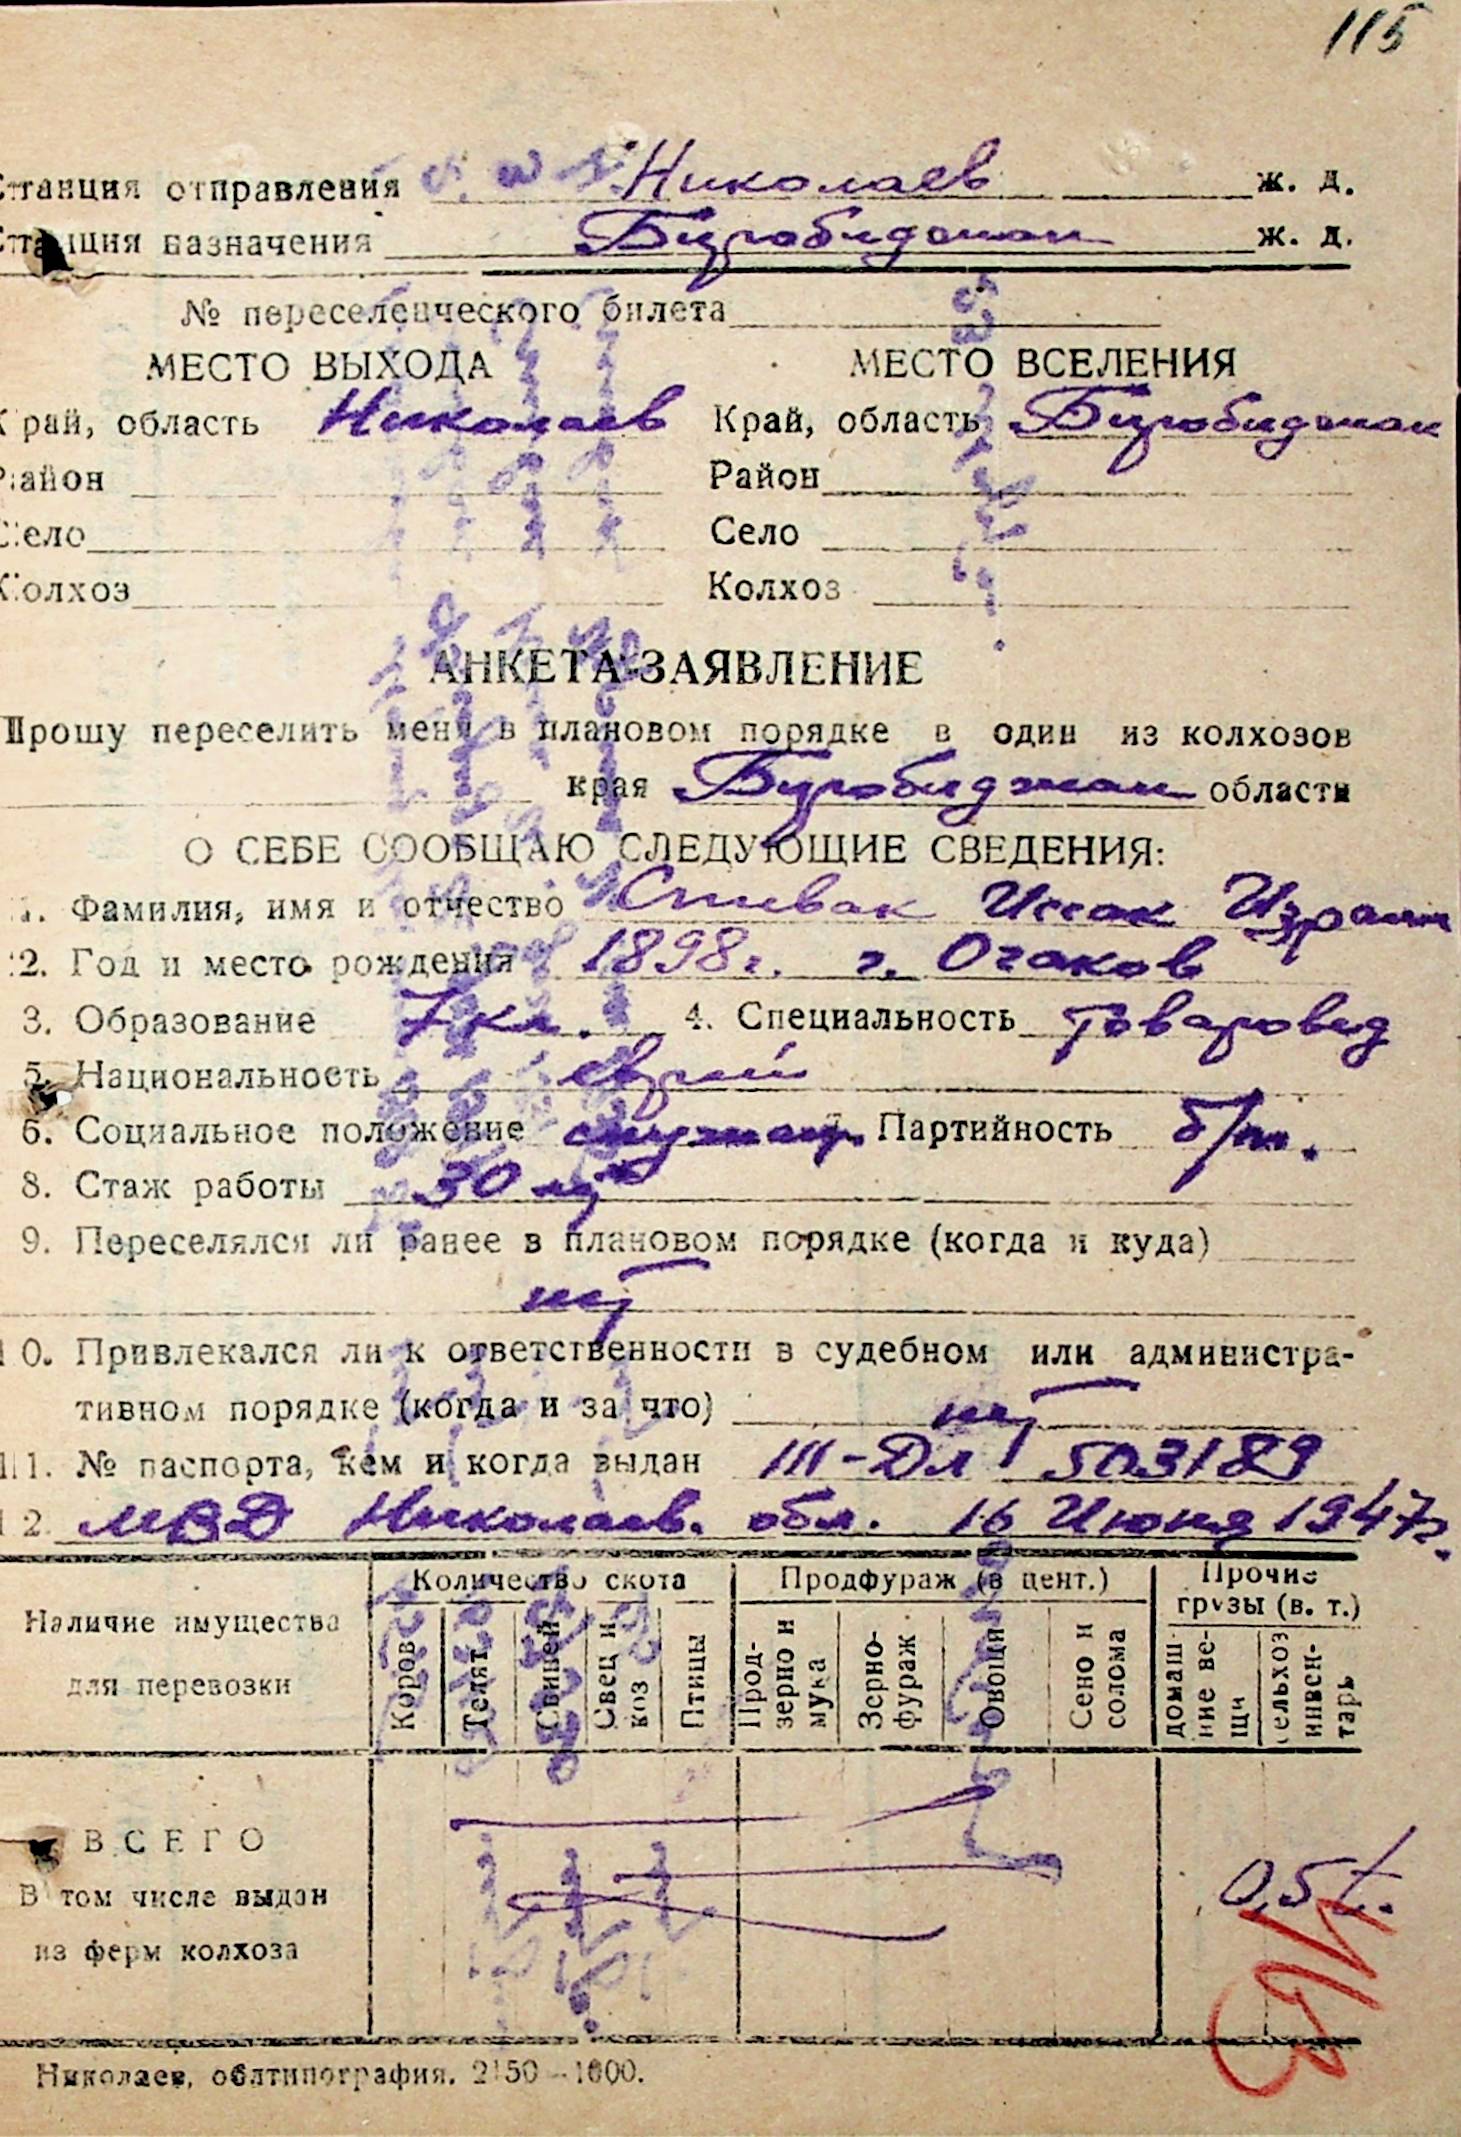 115
Станция отправления Николаев ж. д.
Станция назначения Биробиджан ж. д.
№ переселенческого билета
МЕСТО ВЫХОДА МЕСТО ВСЕЛЕНИЯ
Край, область Николаев Край, область Биробиджан
Район Район
Село Село
Колхоз Колхоз
АНКЕТА-ЗАЯВЛЕНИЕ
Прошу переселить меня в плановом порядке в один из колхозов
края Биробиджан области
О СЕБЕ СООБЩАЮ СЛЕДУЮЩИЕ СВЕДЕНИЯ:
1. Фамилия, имя и отчество Спивак Иссак Израил
2. Год и место рождения 1898 г. г. Очаков
3. Образование 7 кл. 4. Специальность товаровед
5. Национальность еврей
6. Социальное положение служащ. 7. Партийность б/п.
8. Стаж работы 30 лет
9. Переселялся ли ранее в плановом порядке (когда и куда)
нет
10. Привлекался ли к ответственности в судебном или администра-
тивном порядке (когда и за что) нет
11. № паспорта, кем и когда выдан III-ДЛ 503189
12. МВД Николаев. обл. 16 Июня 1947г.
Наличие имущества для перевозки
Количество скота Продфураж (в цент.) Прочие грузы (в. т.)
Коров Телят Свиней Овец и коз Птицы Прод-зерно и мука Зерно-фураж Овощи Сено и солома домаш-ние ве-щи сельхоз инвен-тарь
ВСЕГО 0,5 т.
В том числе выдан
из ферм колхоза
Николаев, облтипография. 2150—1600.